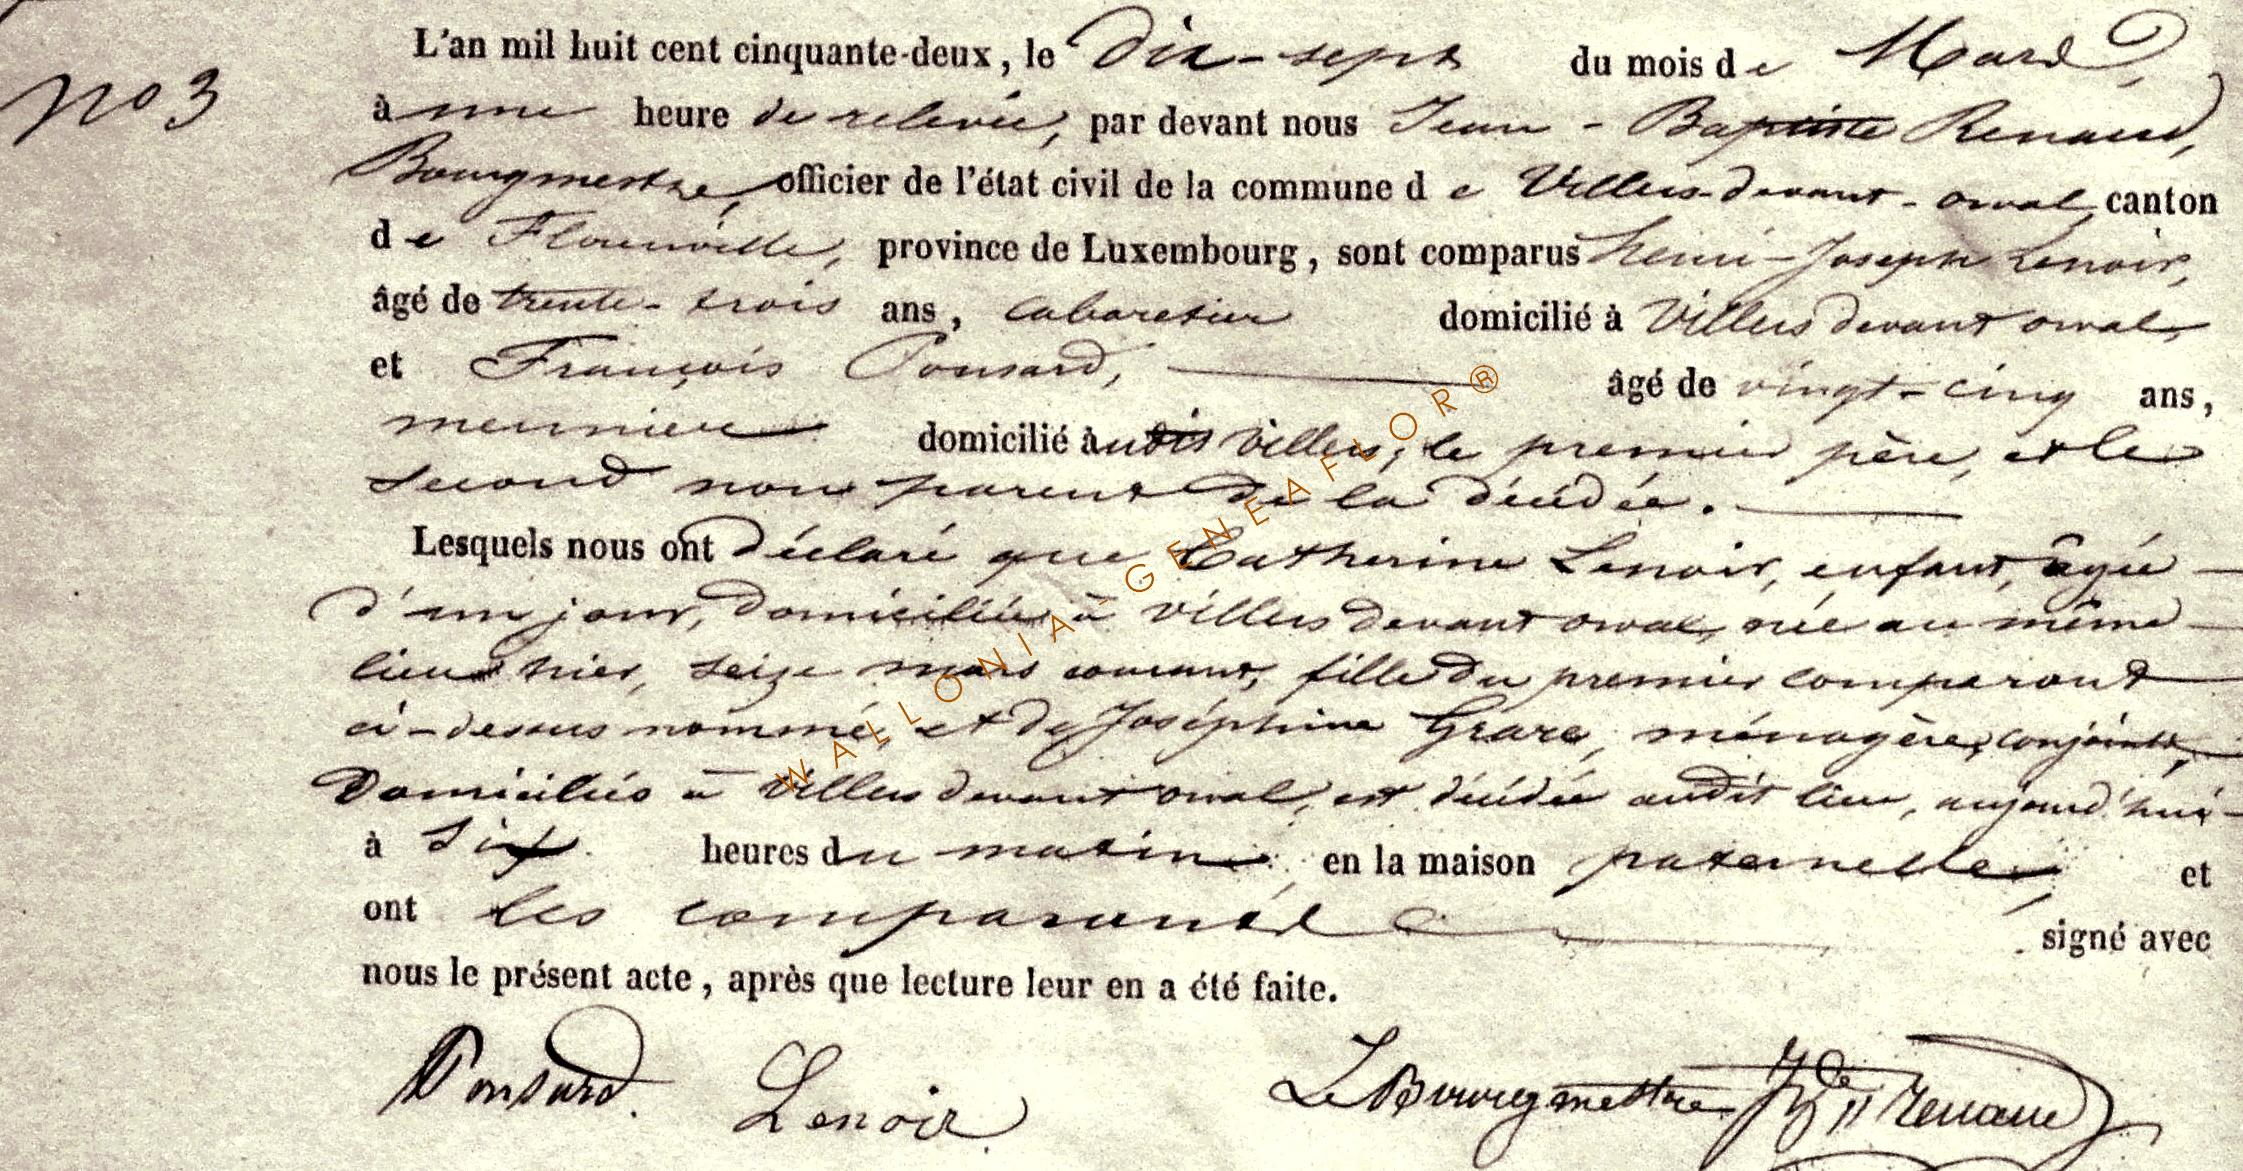 L'an mil huit cent cinquante-deux, le Dix-sept du mois de Mars,
no 3
à une heure de relevée, par devant nous Jean-Baptiste Renaud,
Bourgmestre, officier de l'état civil de la commune de Villers-devant-orval, canton
de Florenville, province de Luxembourg, sont comparus henri-Joseph Lenoir,
âgé de trente-trois ans, cabaretier domicilié à Villers devant orval,
et François Ponsard, âgé de vingt-cinq ans,
meunier domicilié àudit Villers, le premier père, et le
second non parent de la décédée.
Lesquels nous ont déclaré que Catherine Lenoir, enfant, âgée
d'un jour, domiciliée à villers devant orval, née au même
lieu hier, seize mars courant, fille du premier comparant
ci-dessus nommé, et de Joséphine Grare, ménagère, conjoints,
Domiciliés à Villers devant orval, est décédée audit lieu, aujourd'hui
à six heures du matin, en la maison paternelle, et
ont les comparants signé avec
nous le présent acte, après que lecture leur en a été faite.
Ponsard. Lenoir Le Bourgmestre Renaud
WALLONIA-GENEAFLOR®